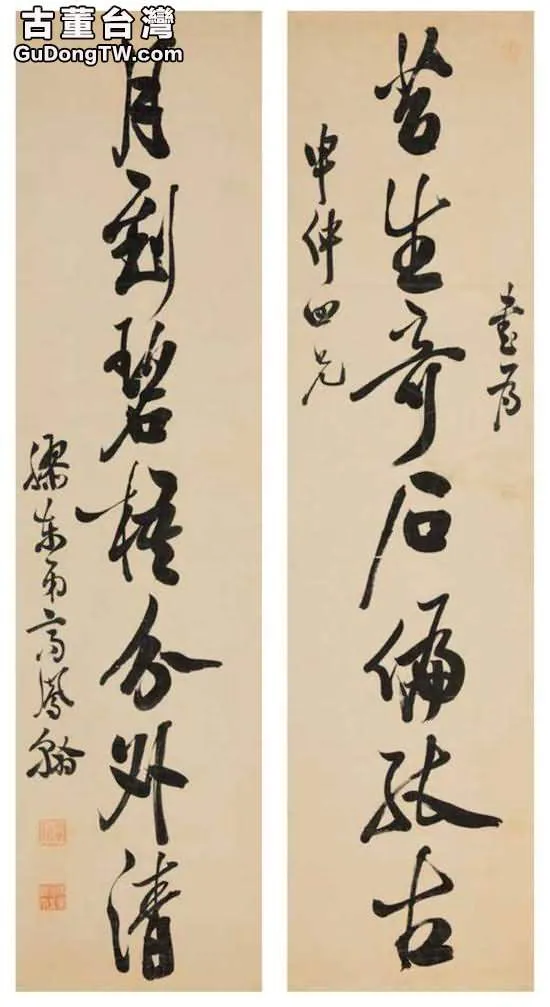 古董台灣
GuDongTW.com
書為
苔生奇石偏古
申仲四兄
月到碧梧分外清
膠東弟高鳳翰